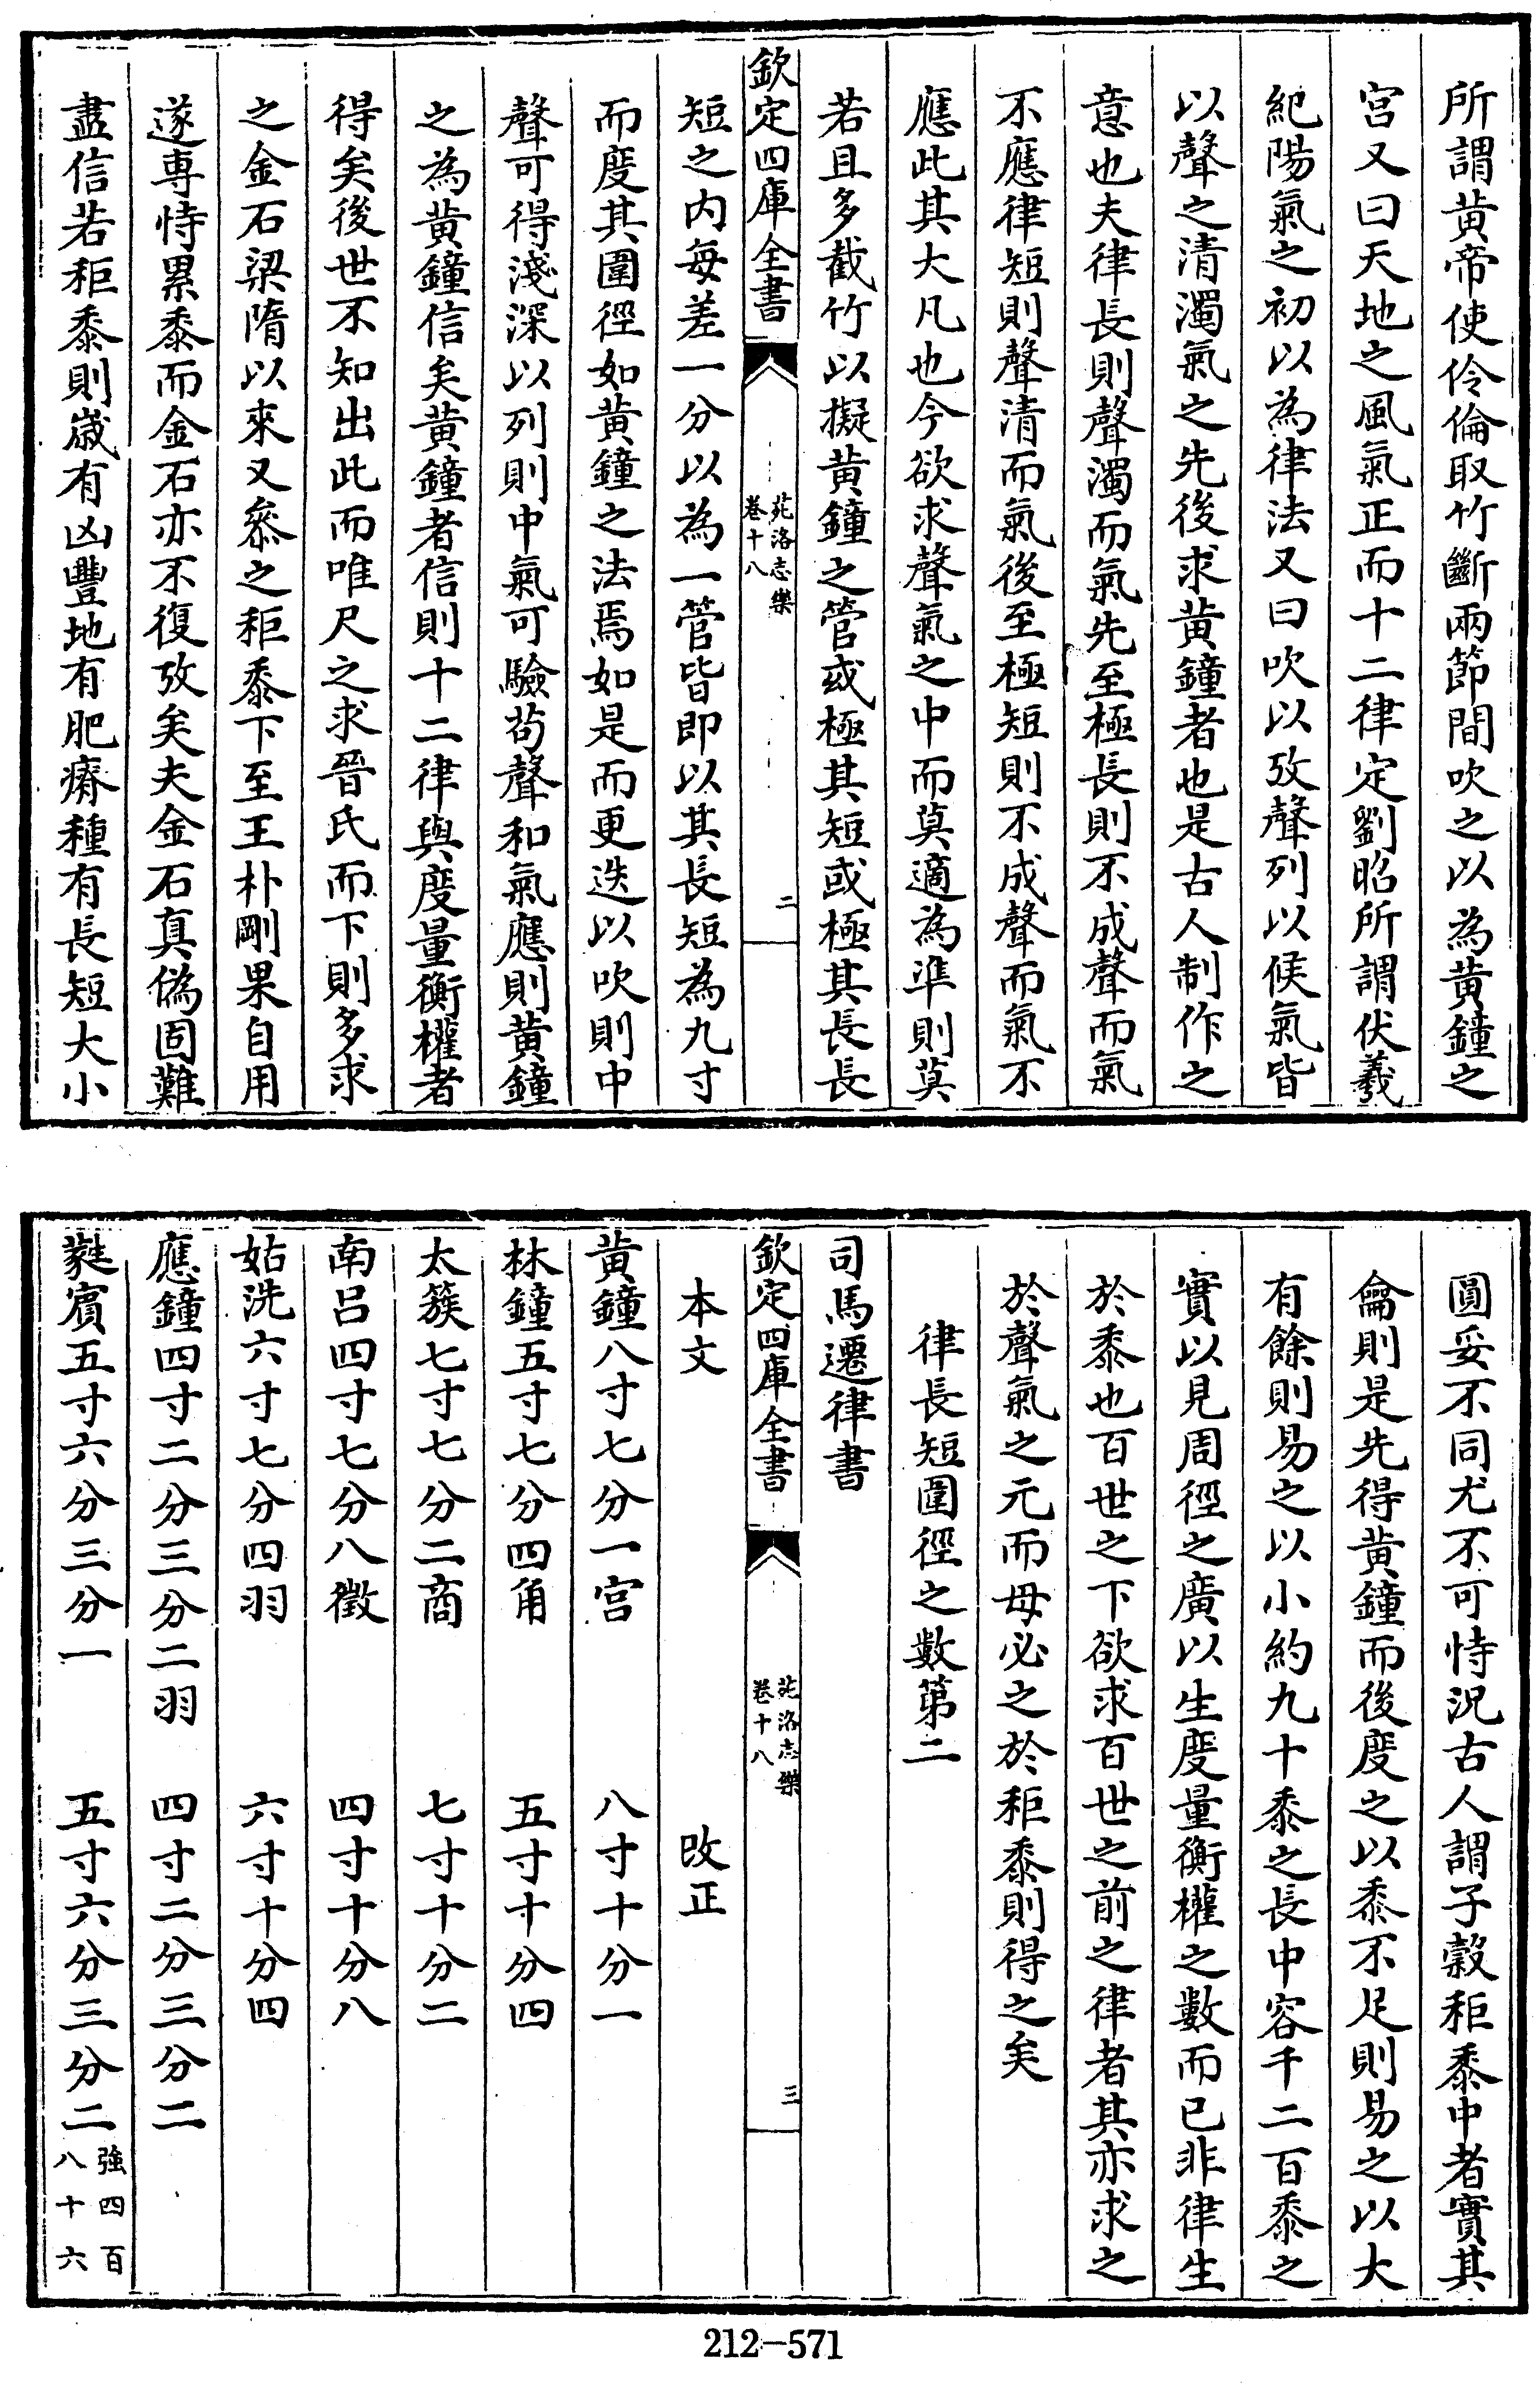 所謂黄帝使伶倫取竹斷兩節間吹之以為黄鐘之
宫又曰天地之風氣正而十二律定劉昭所謂伏羲
紀陽氣之初以為律法又曰吹以攷聲列以候氣皆
以聲之清濁氣之先後求黄鐘者也是古人制作之
意也夫律長則聲濁而氣先至極長則不成聲而氣
不應律短則聲清而氣後至極短則不成聲而氣不
應此其大凡也今欲求聲氣之中而莫適為準則莫
若且多截竹以擬黄鐘之管或極其短或極其長長
欽定四庫全書
苑洛志樂
卷十八
二
短之内每差一分以為一管皆即以其長短為九寸
而度其圍徑如黄鐘之法焉如是而更迭以吹則中
聲可得淺深以列則中氣可驗苟聲和氣應則黄鐘
之為黄鐘信矣黄鐘者信則十二律與度量衡權者
得矣後世不知出此而唯尺之求晉氏而下則多求
之金石梁隋以來又叅之秬黍下至王朴剛果自用
遂専恃累黍而金石亦不復攷矣夫金石真偽固難
盡信若秬黍則嵗有凶豐地有肥瘠種有長短大小
圓妥不同尤不可恃況古人謂子穀秬黍中者實其
龠則是先得黄鐘而後度之以黍不足則易之以大
有餘則易之以小約九十黍之長中容千二百黍之
實以見周徑之廣以生度量衡權之數而已非律生
於黍也百世之下欲求百世之前之律者其亦求之
於聲氣之元而毋必之於秬黍則得之矣
律長短圍徑之數第二
司馬遷律書
欽定四庫全書
苑洛志樂
卷十八
三
本文 改正
黄鐘八寸七分一宫 八寸十分一
林鐘五寸七分四角 五寸十分四
太簇七寸七分二商 七寸十分二
南吕四寸七分八徵 四寸十分八
姑洗六寸七分四羽 六寸十分四
應鐘四寸二分三分二羽 四寸二分三分二
蕤賓五寸六分三分一 五寸六分三分二強四百八十六
212-571